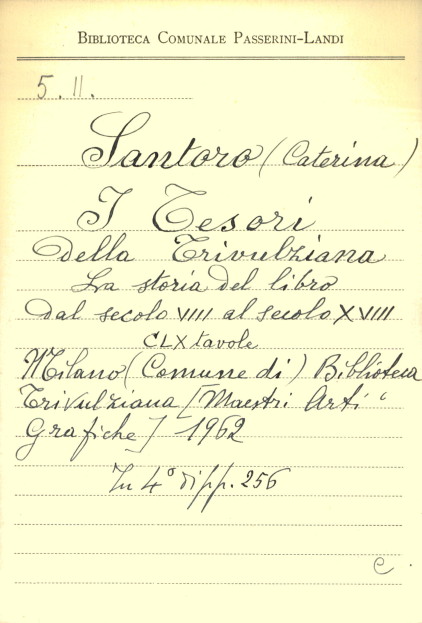 BIBLIOTECA COMUNALE PASSERINI-LANDI
5. II.
Santoro (Caterina)
I Tesori
della Trivulziana
La storia del libro
dal secolo VIII al secolo XVIII
CLX tavole
Milano (Comune di) Biblioteca
Trivulziana [Maestri Arti
Grafiche] 1962
In 4° di pp. 256
C.